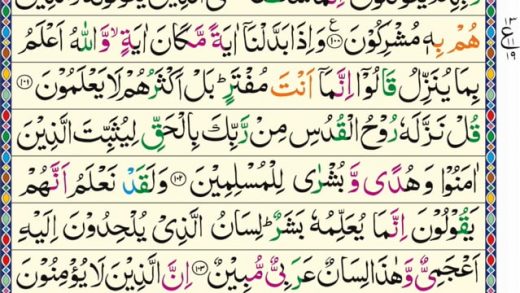 هُمْ بِهٖ مُشْرِكُوْنَ ﴿۱۰۰﴾ ع وَاِذَا بَدَّلْنَاۤ اٰيَةً مَّكَانَ اٰيَةٍ ۙ وَّاللّٰهُ اَعْلَمُ
بِمَا يُنَزِّلُ قَالُوْۤا اِنَّمَاۤ اَنْتَ مُفْتَرٍ ؕ بَلْ اَكْثَرُهُمْ لَا يَعْلَمُوْنَ ﴿۱۰۱﴾
قُلْ نَزَّلَهٗ رُوْحُ الْقُدُسِ مِنْ رَّبِّكَ بِالْحَقِّ لِيُثَبِّتَ الَّذِيْنَ
اٰمَنُوْا وَهُدًى وَّبُشْرٰى لِلْمُسْلِمِيْنَ ﴿۱۰۲﴾ وَلَقَدْ نَعْلَمُ اَنَّهُمْ
يَقُوْلُوْنَ اِنَّمَا يُعَلِّمُهٗ بَشَرٌ ؕ لِسَانُ الَّذِيْ يُلْحِدُوْنَ اِلَيْهِ
اَعْجَمِيٌّ وَّهٰذَا لِسَانٌ عَرَبِيٌّ مُّبِيْنٌ ﴿۱۰۳﴾ اِنَّ الَّذِيْنَ لَا يُؤْمِنُوْنَ
۱۳
ع
۱۹